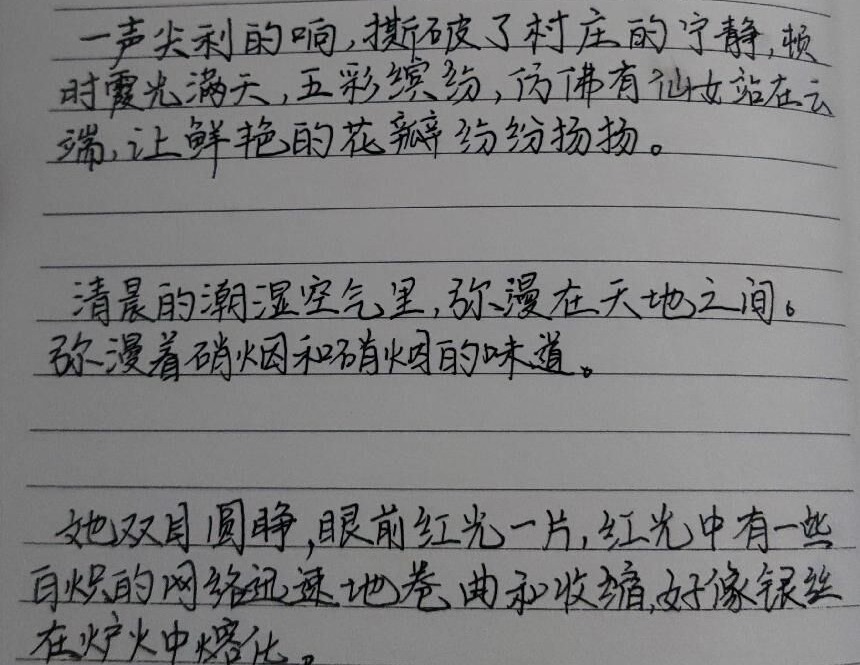 一声尖利的响,撕破了村庄的宁静,顿
时霞光满天,五彩缤纷,仿佛有仙女站在云
端,让鲜艳的花瓣纷纷扬扬。
清晨的潮湿空气里,弥漫在天地之间。
弥漫着硝烟和硝烟的味道。
她双目圆睁,眼前红光一片,红光中有一些
白炽的网络迅速地卷曲和收缩,好像银丝
在炉火中熔化。